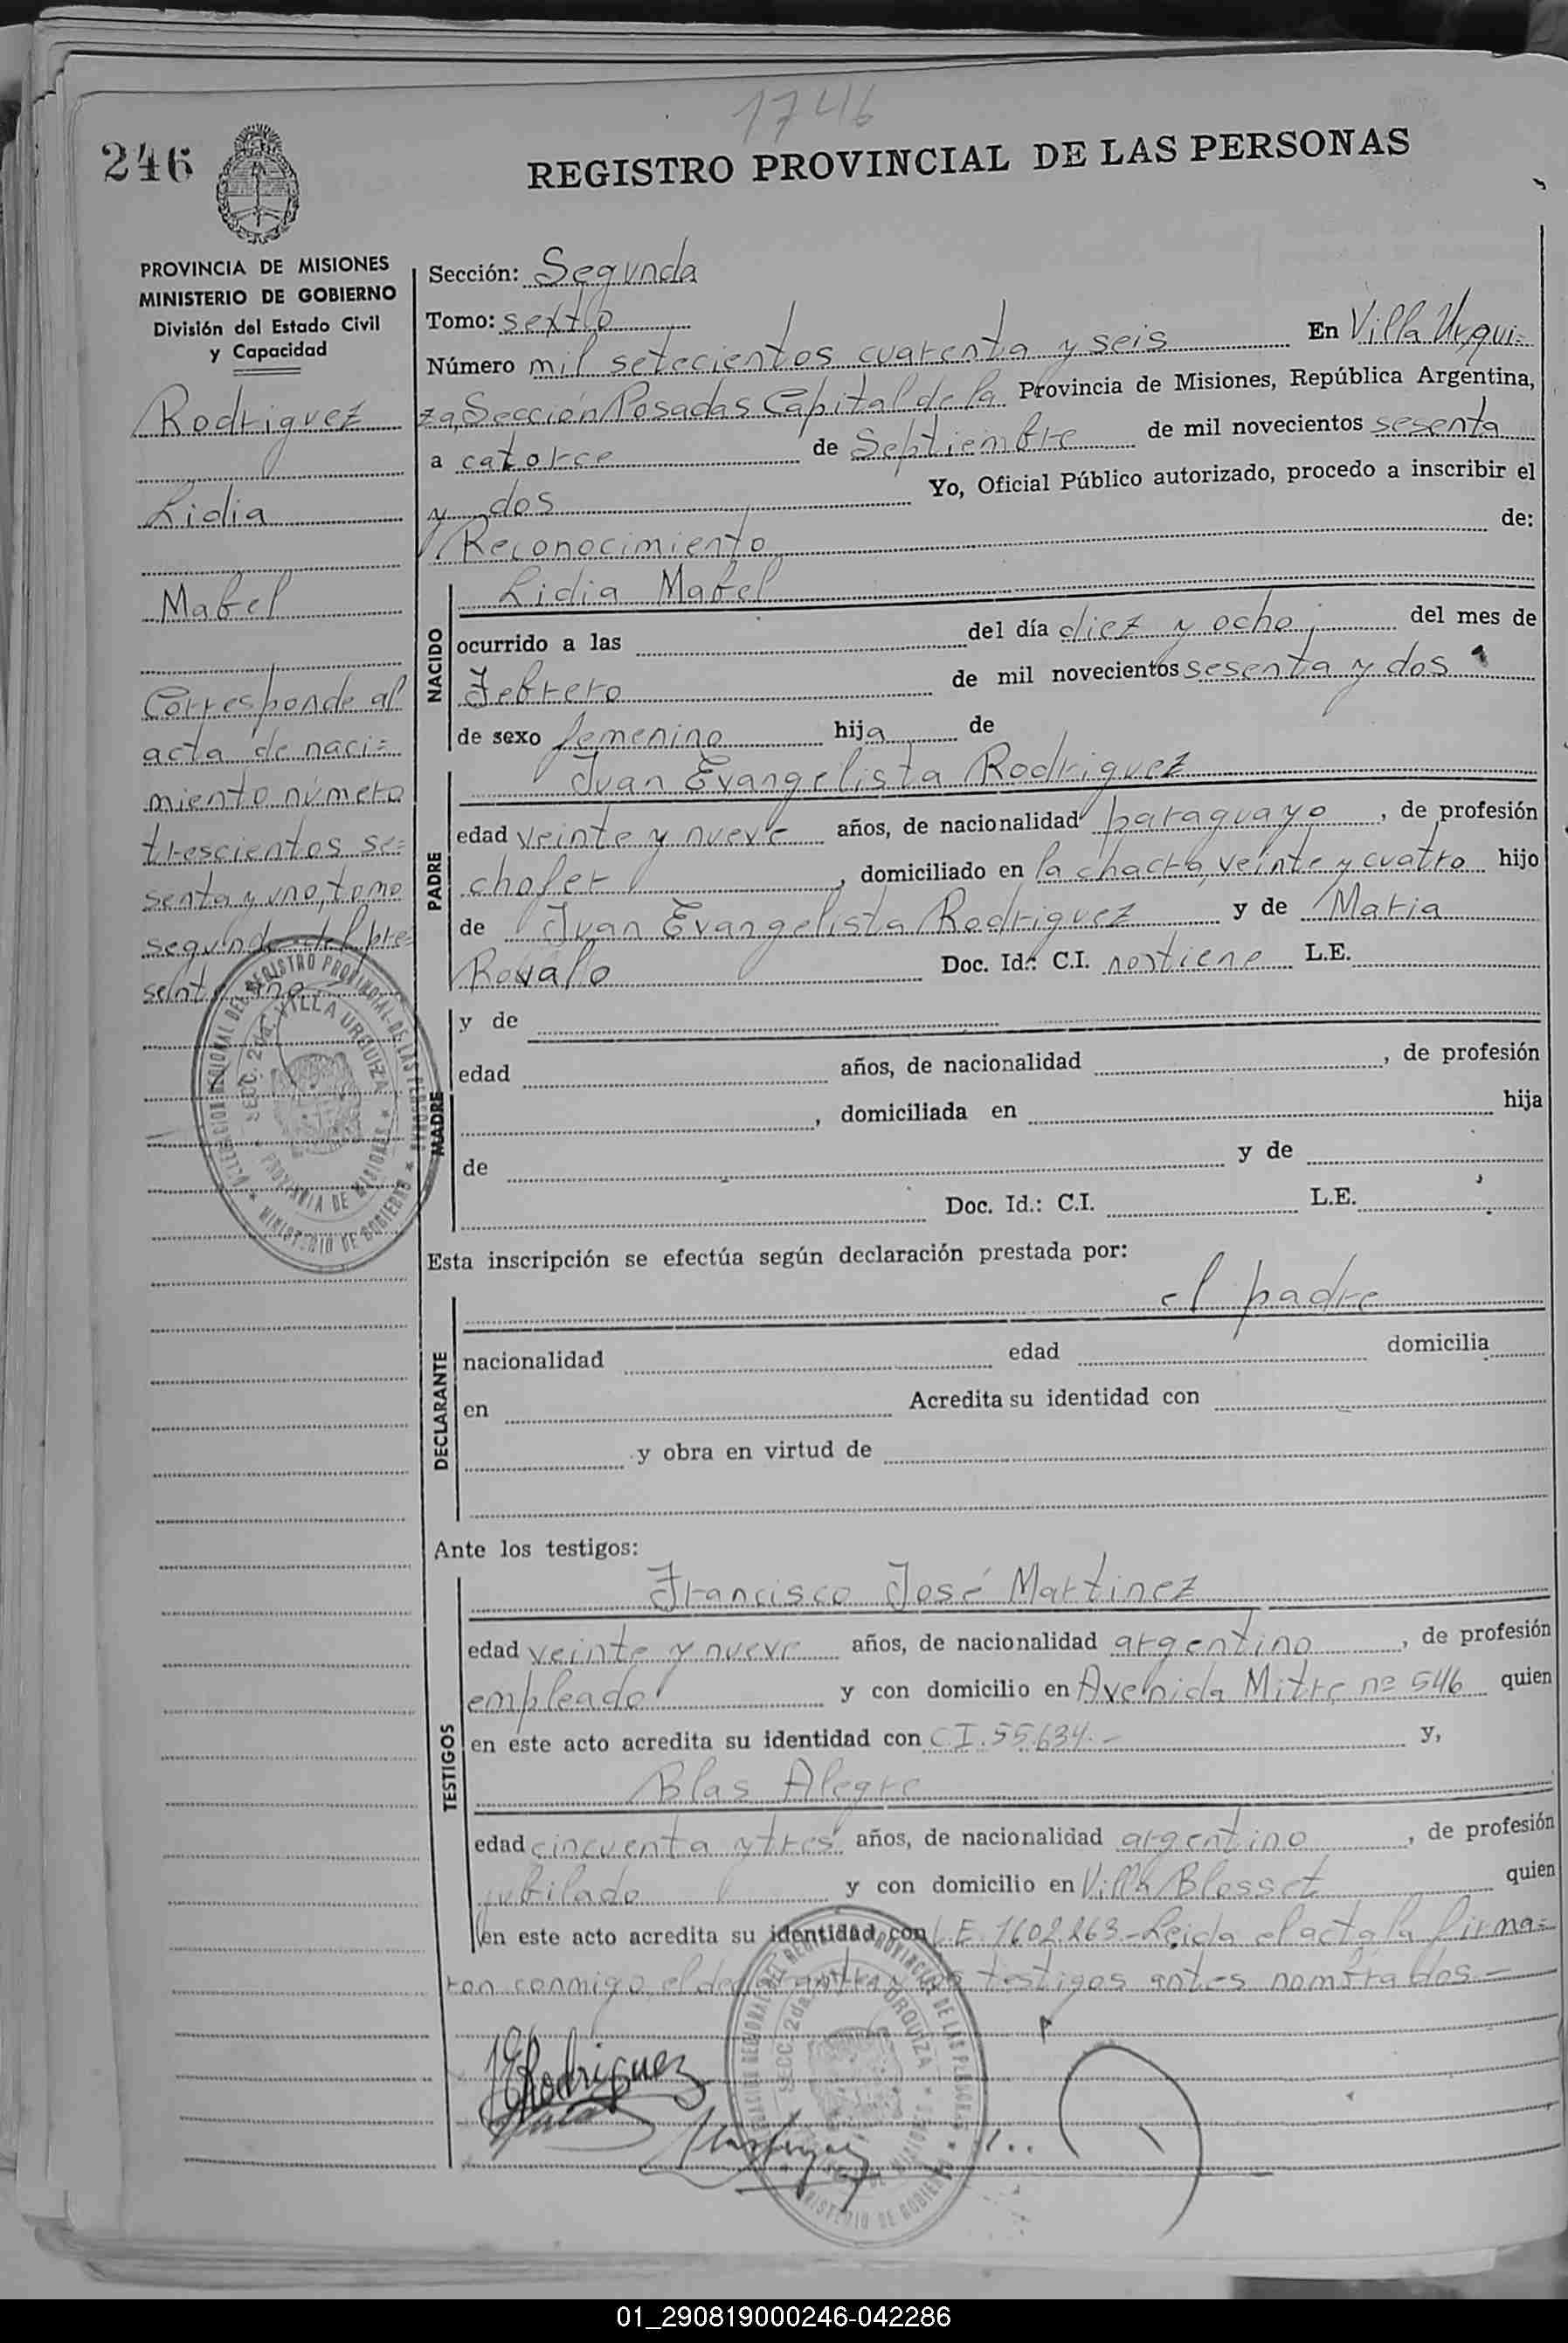 1746
246
REGISTRO PROVINCIAL DE LAS PERSONAS
PROVINCIA DE MISIONES
MINISTERIO DE GOBIERNO
División del Estado Civil
y Capacidad
Rodriguez
Lidia
Mabel
Corresponde al
acta de naci=
miento número
trescientos se=
senta y uno, tomo
segundo del pre=
sente año
Sección: Segunda
Tomo: sexto
Número mil setecientos cuarenta y seis En Villa Urqui=
za, Sección Posadas Capital de la Provincia de Misiones, República Argentina,
a catorce de Septiembre de mil novecientos sesenta
y dos Yo, Oficial Público autorizado, procedo a inscribir el
Reconocimiento de:
NACIDO
Lidia Mabel
ocurrido a las del día diez y ocho del mes de
Febrero de mil novecientos sesenta y dos
de sexo femenino hija de
PADRE
Juan Evangelista Rodriguez
edad veinte y nueve años, de nacionalidad paraguayo, de profesión
chofer, domiciliado en la chacra veinte y cuatro hijo
de Juan Evangelista Rodriguez y de Maria
Rovalo Doc. Id.: C.I. no tiene L.E.
MADRE
y de
edad años, de nacionalidad , de profesión
, domiciliada en hija
de y de
Doc. Id.: C.I. L.E.
Esta inscripción se efectúa según declaración prestada por:
DECLARANTE
el padre
nacionalidad edad domicilia
en Acredita su identidad con
y obra en virtud de
Ante los testigos:
TESTIGOS
Francisco José Martinez
edad veinte y nueve años, de nacionalidad argentino, de profesión
empleado y con domicilio en Avenida Mitre nº 546 quien
en este acto acredita su identidad con C.I. 55.634.- y,
Blas Alegre
edad cincuenta y tres años, de nacionalidad argentino, de profesión
jubilado y con domicilio en Villa Blosset quien
en este acto acredita su identidad con L.E. 1602.263.- Leida el acta la firma=
ron conmigo, el declarante y los testigos antes nombrados.-
JERodriguez
DELEGACION REGIONAL DEL REGISTRO PROVINCIAL DE LAS PERSONAS
SECC. 2da. VILLA URQUIZA
PROVINCIA DE MISIONES
MINISTERIO DE GOBIERNO
01_290819000246-042286